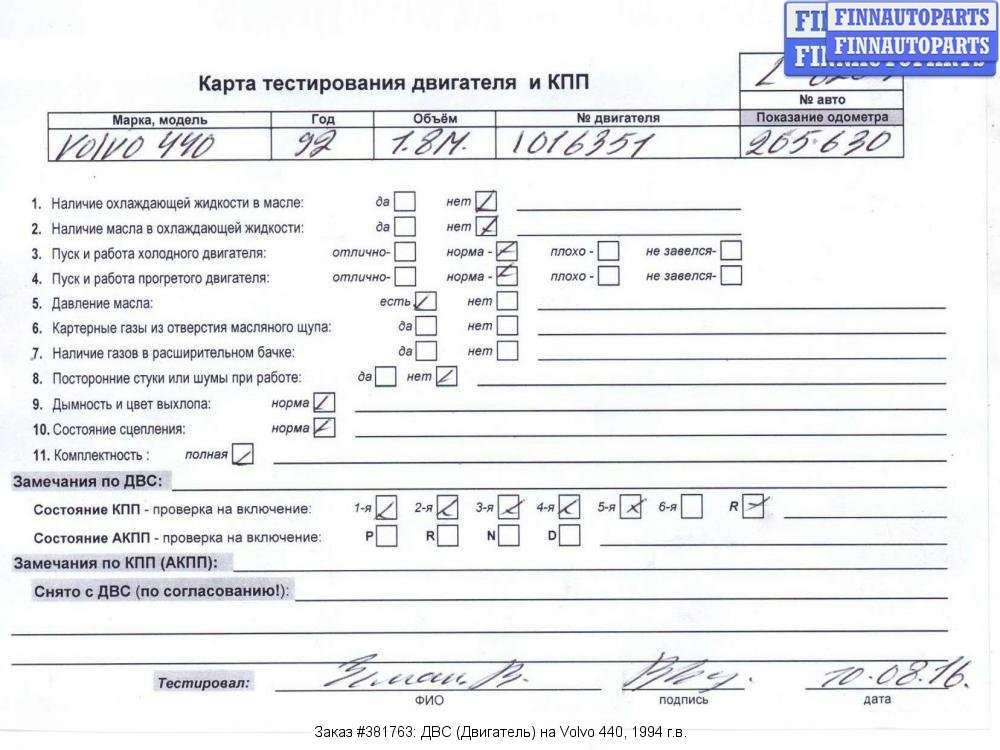 FINNAUTOPARTS
FINNAUTOPARTS
Карта тестирования двигателя и КПП
№ авто
Марка, модель Год Объём № двигателя Показание одометра
Volvo 440 92 1.8М. 1016351 265.630
1. Наличие охлаждающей жидкости в масле: да нет
2. Наличие масла в охлаждающей жидкости: да нет
3. Пуск и работа холодного двигателя: отлично- норма - плохо - не завелся-
4. Пуск и работа прогретого двигателя: отлично- норма - плохо - не завелся-
5. Давление масла: есть нет
6. Картерные газы из отверстия масляного щупа: да нет
7. Наличие газов в расширительном бачке: да нет
8. Посторонние стуки или шумы при работе: да нет
9. Дымность и цвет выхлопа: норма
10. Состояние сцепления: норма
11. Комплектность : полная
Замечания по ДВС:
Состояние КПП - проверка на включение: 1-я 2-я 3-я 4-я 5-я 6-я R
Состояние АКПП - проверка на включение: P R N D
Замечания по КПП (АКПП):
Снято с ДВС (по согласованию!):
Тестировал: 10.08.16.
ФИО подпись дата
Заказ #381763: ДВС (Двигатель) на Volvo 440, 1994 г.в.